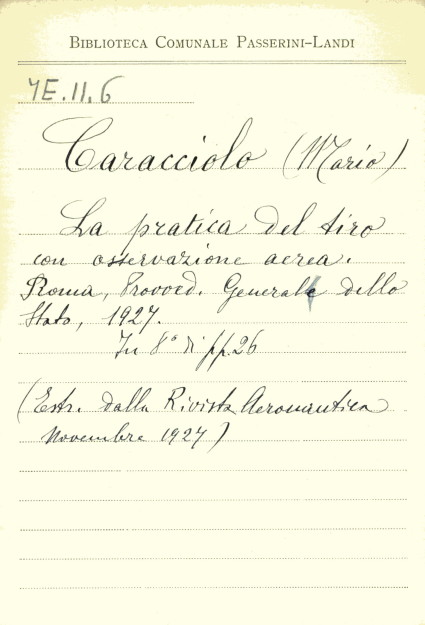 BIBLIOTECA COMUNALE PASSERINI-LANDI
4E.II.6
Caracciolo (Mario)
La pratica del tiro
con osservazione aerea.
Roma, Provved. Generale dello
Stato, 1927.
In 8° di pp. 26
(Estr. dalla Rivista Aeronautica
Novembre 1927)